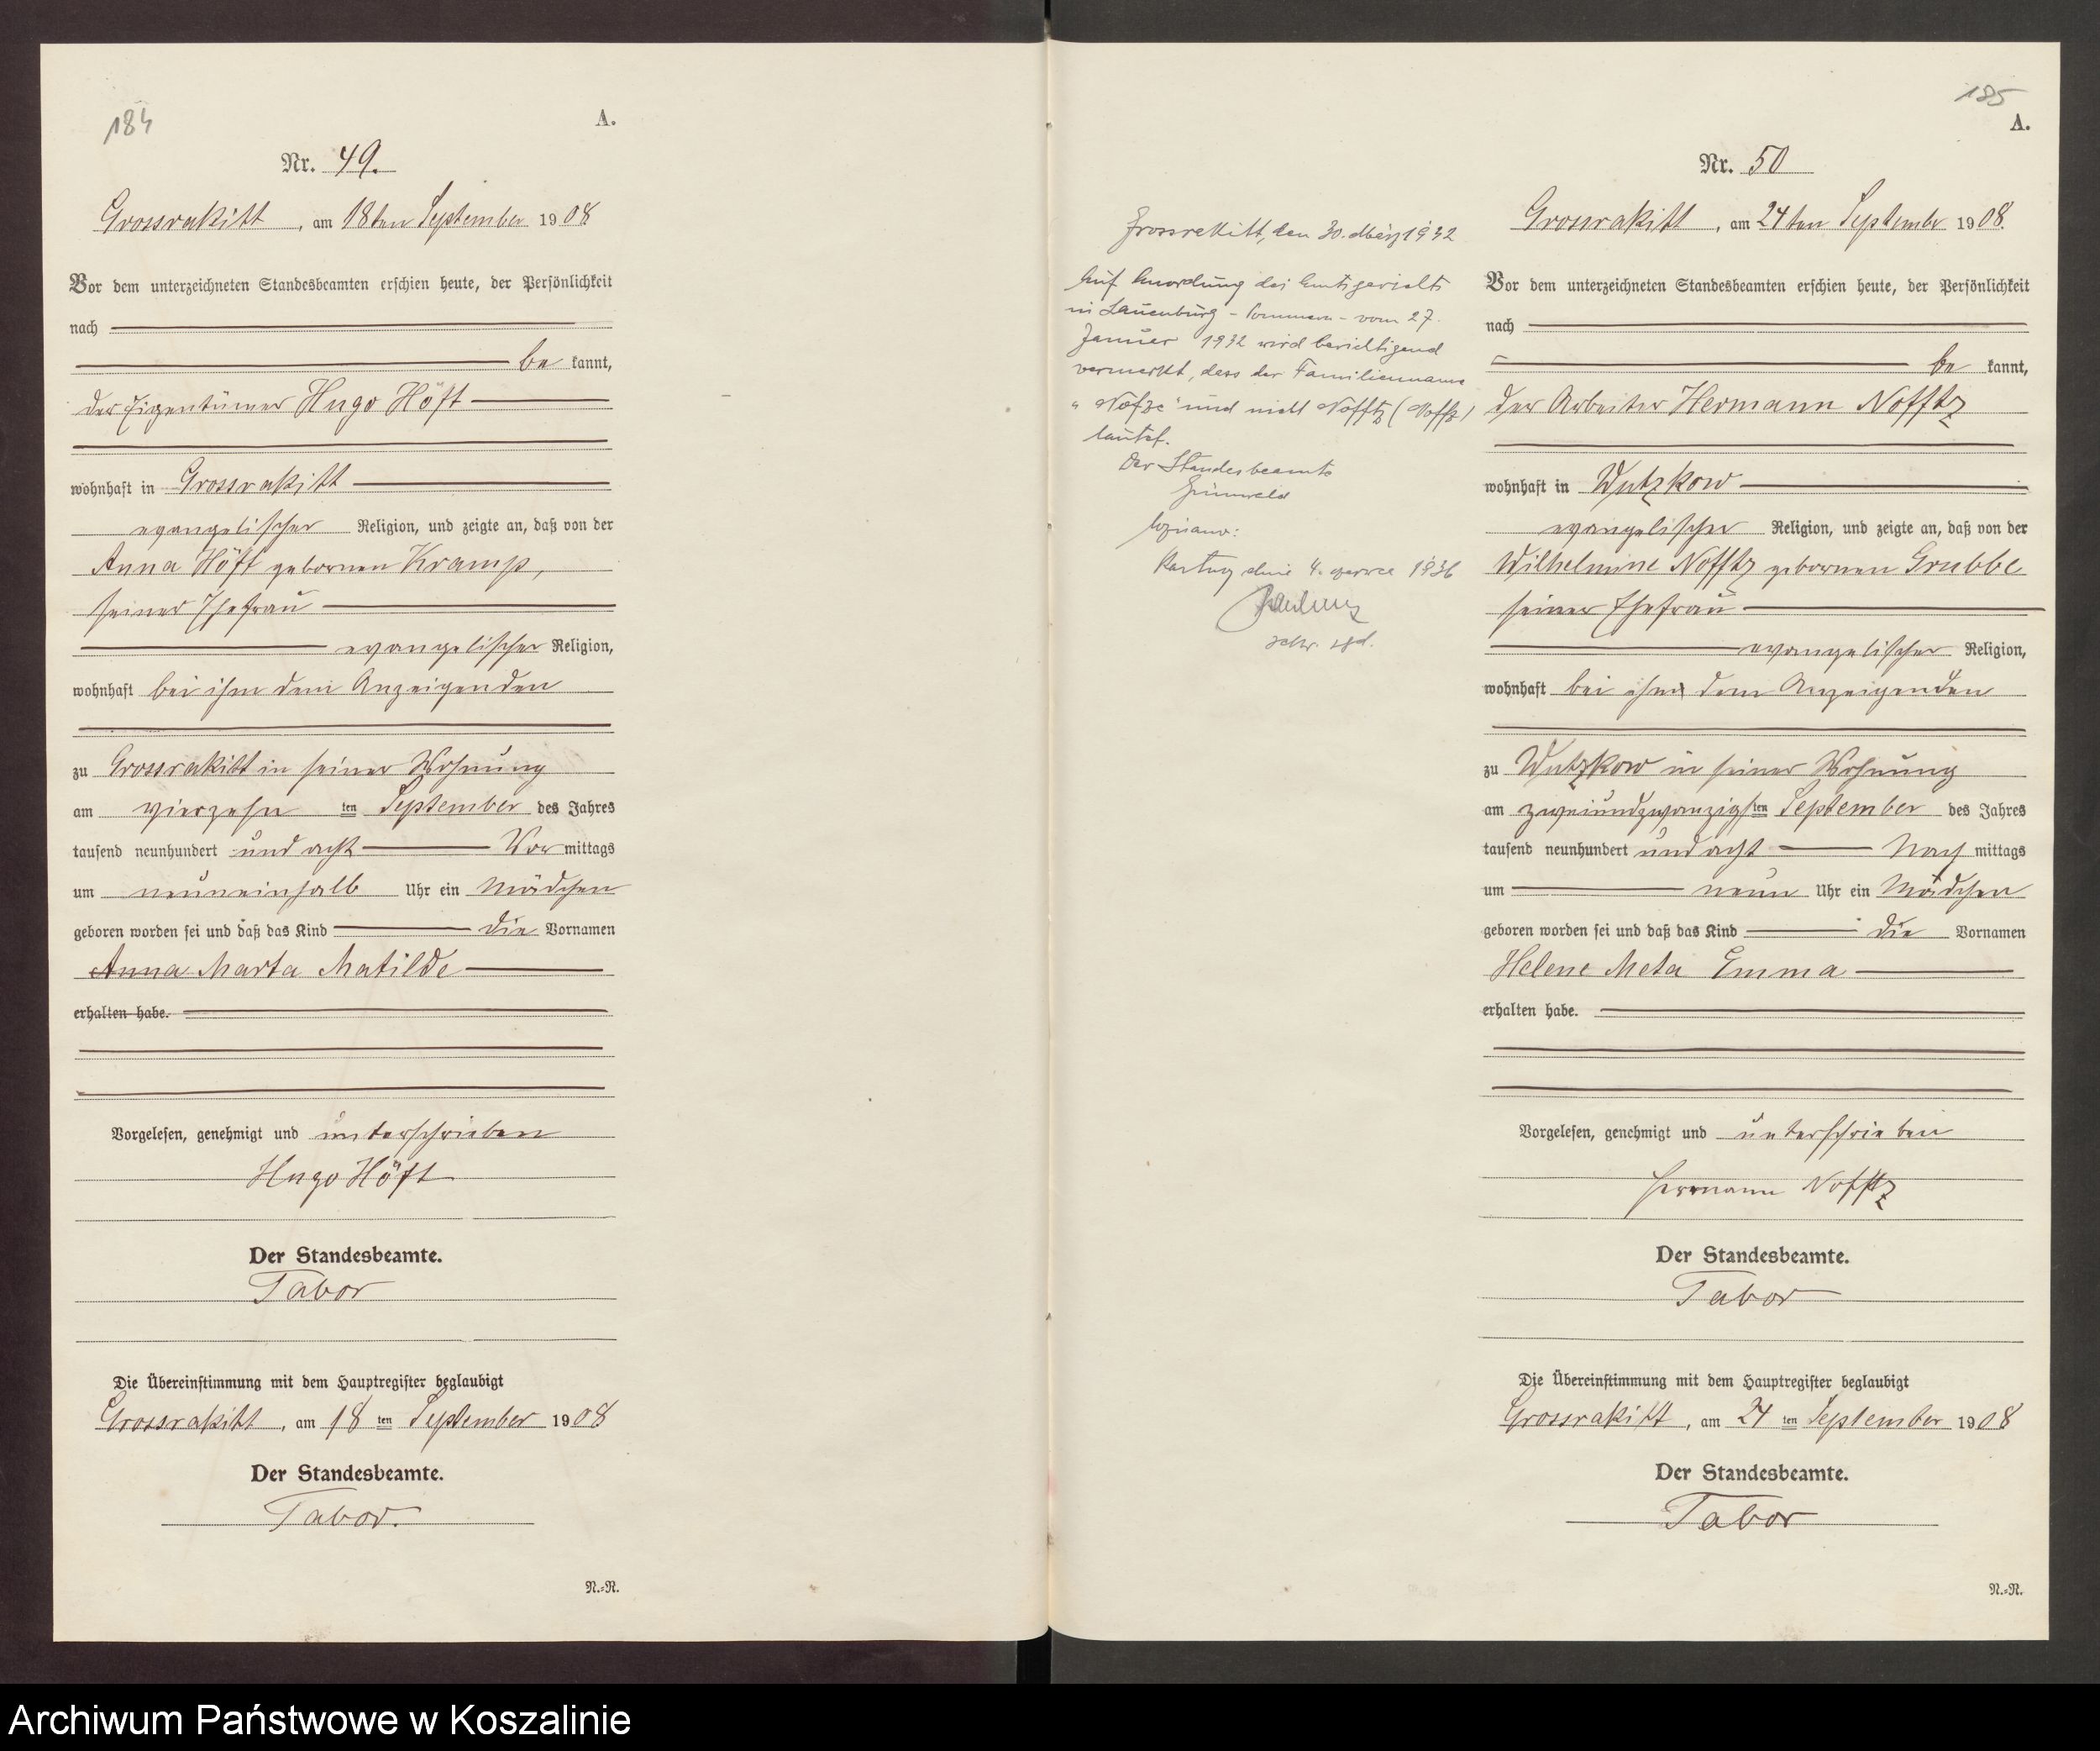 184
A.
Nr. 49.
Grossrakitt, am 18ten September 1908
Vor dem unterzeichneten Standesbeamten erschien heute, der Persönlichkeit
nach
be kannt,
der Eigentümer Hugo Höft
wohnhaft in Grossrakitt
evangelischer Religion, und zeigte an, daß von der
Anna Höft gebornen Kramp,
seiner Ehefrau
evangelischer Religion,
wohnhaft bei ihm dem Anzeigenden
zu Grossrakitt in seiner Wohnung
am vierzehn ten September des Jahres
tausend neunhundert und acht Vor mittags
um neuneinhalb Uhr ein Mädchen
geboren worden sei und daß das Kind die Vornamen
Anna Marta Matilde
erhalten habe.
Vorgelesen, genehmigt und unterschrieben
Hugo Höft
Der Standesbeamte.
Tabor
Die Übereinstimmung mit dem Hauptregister beglaubigt
Grossrakitt, am 18 ten September 1908
Der Standesbeamte.
Tabor.
N.=N.
Grossrakitt, den 30. März 1932
Auf Anordnung des Amtsgerichts
in Lauenburg - Pommern - vom 27.
Januar 1932 wird berichtigend
vermerkt, dass der Familienname
"Nofze" und nicht Nofftz (Noffz)
lautet.
Der Standesbeamte
4. 1936
185
A.
Nr. 50
Grossrakitt, am 24ten September 1908.
Vor dem unterzeichneten Standesbeamten erschien heute, der Persönlichkeit
nach
be kannt,
der Arbeiter Hermann Nofftz
wohnhaft in Wutzkow
evangelischer Religion, und zeigte an, daß von der
Wilhelmine Nofftz gebornen Grubbe
seiner Ehefrau
evangelischer Religion,
wohnhaft bei ihm dem Anzeigenden
zu Wutzkow in seiner Wohnung
am zweiundzwanzigsten September des Jahres
tausend neunhundert und acht Nach mittags
um neun Uhr ein Mädchen
geboren worden sei und daß das Kind die Vornamen
Helene Meta Emma
erhalten habe.
Vorgelesen, genehmigt und unterschrieben
Hermann Nofftz
Der Standesbeamte.
Tabor
Die Übereinstimmung mit dem Hauptregister beglaubigt
Grossrakitt, am 24 ten September 1908
Der Standesbeamte.
Tabor
N.=N.
Archiwum Państwowe w Koszalinie